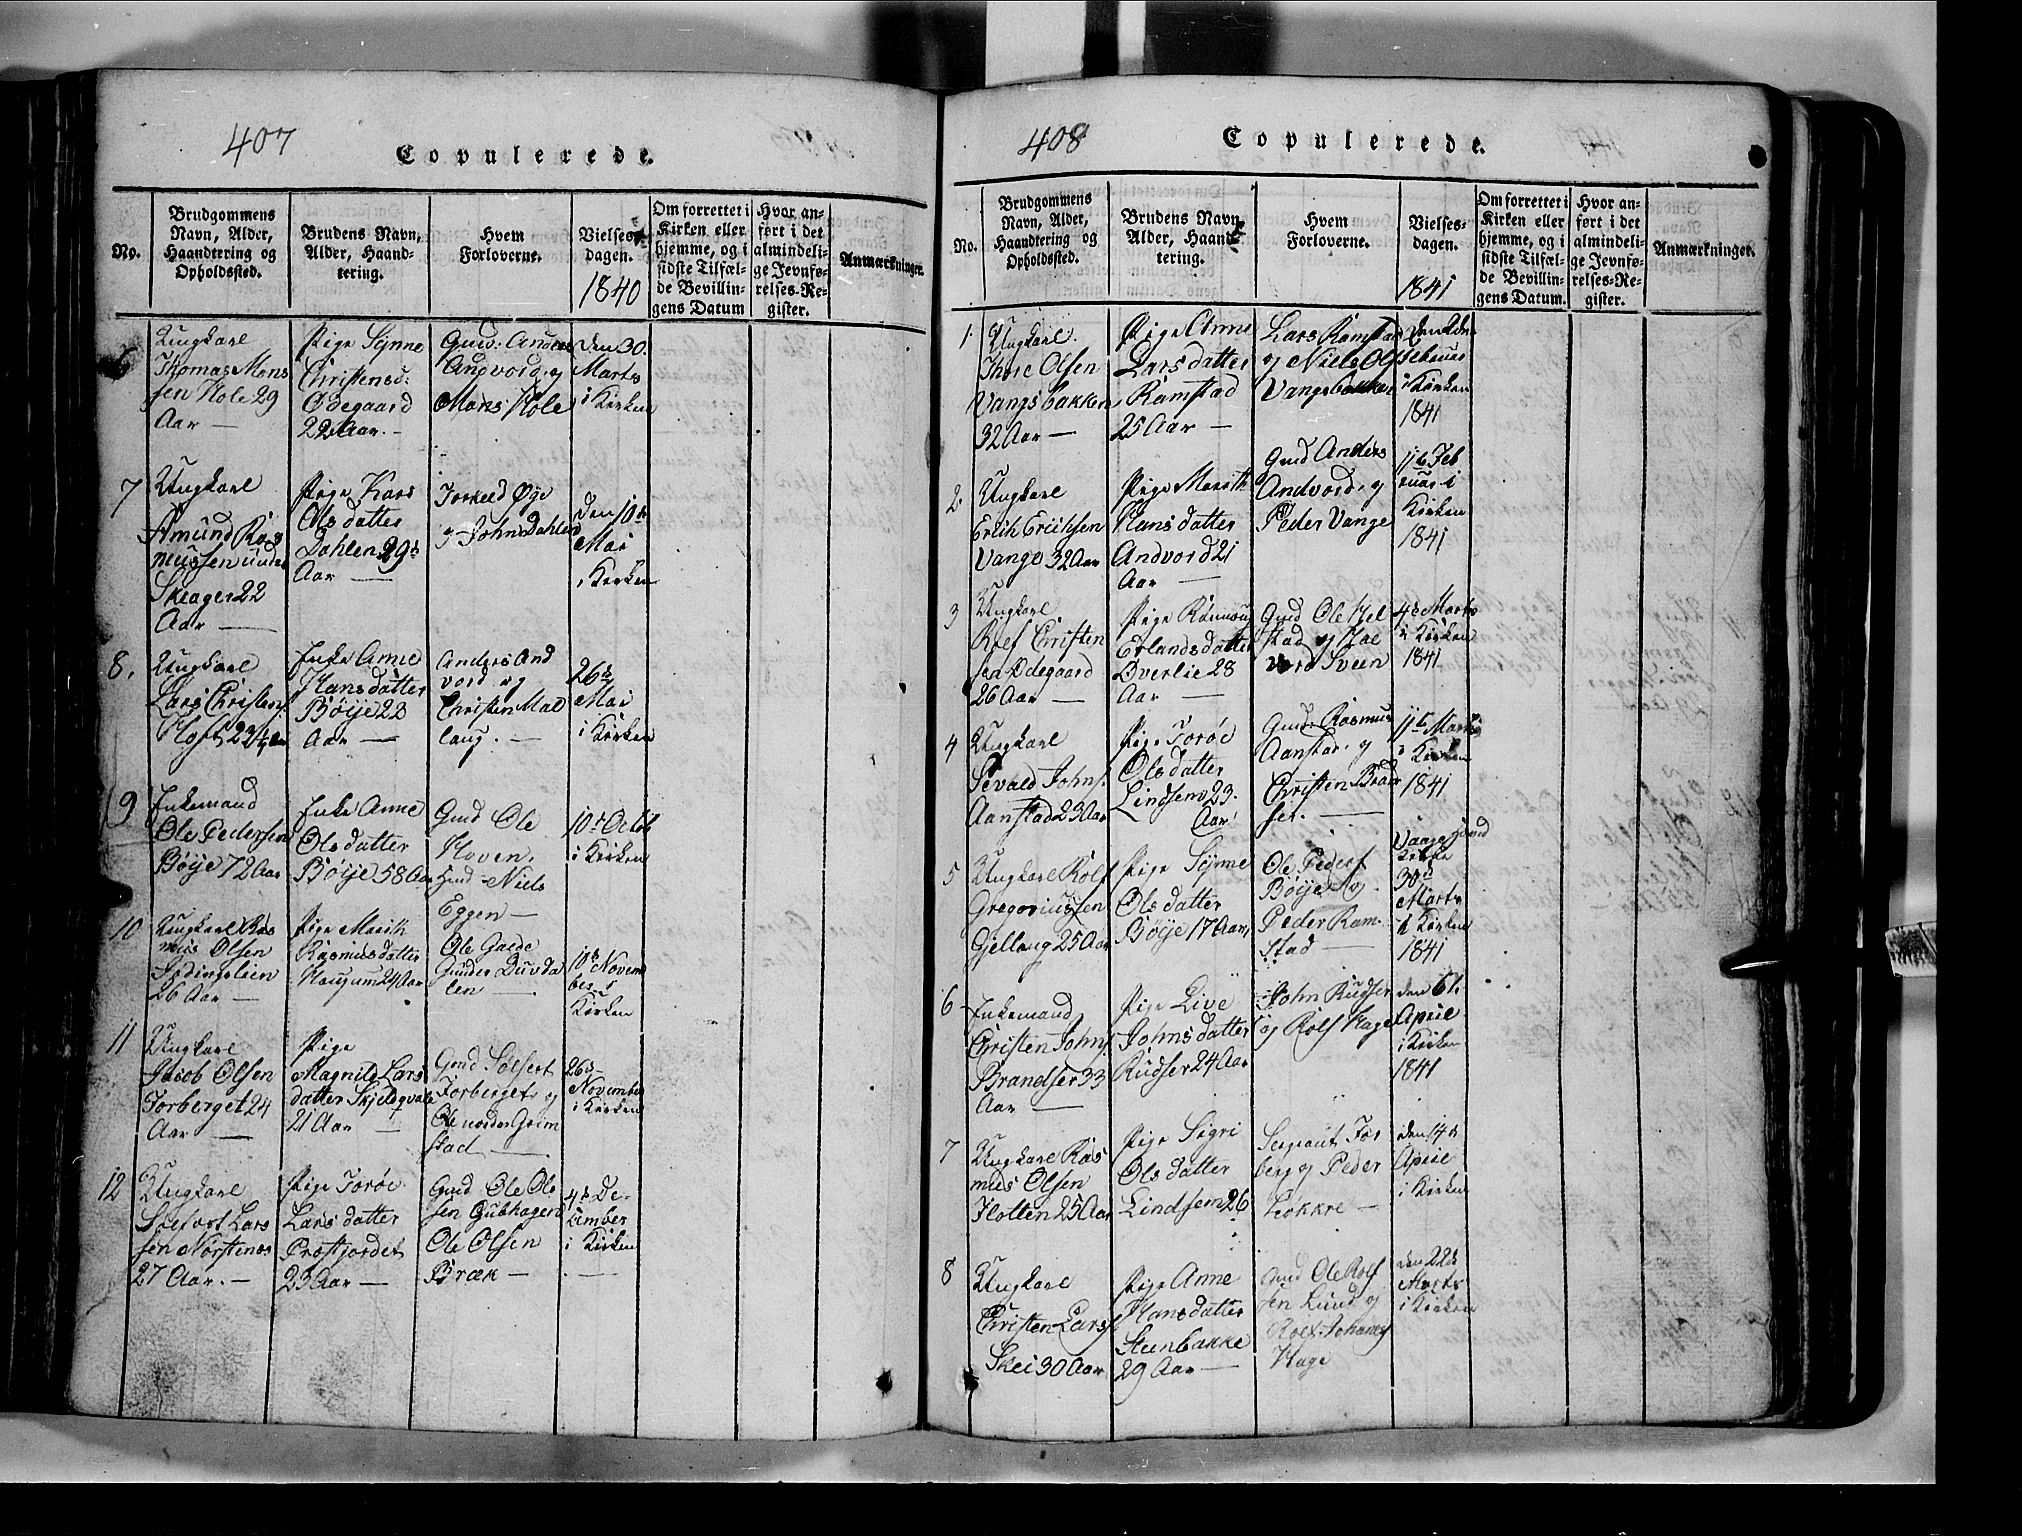 407
Copulerede.
No.
Brudgommens
Navn, Alder,
Haandtering og
Opholdssted.
Brudens Navn,
Alder, Haand-
tering.
Hvem
Forloverne.
Vielses-
dagen.
1840
Om forrettet i
Kirken eller
hjemme, og i
sidste Tilfæl-
de Bevillin-
gens Datum
Hvor an-
ført i det
almindeli-
ge Jevnfø-
relses-Re-
gister.
Anmærkninger.
6
Ungkarl
Thomas Mons
sen Hole 29
Aar —
Pige Synne
Christensd:
Ødegaard
22 Aar. —
Gmd: Anders
Andvord, og
Mons Hole
Den 30.
Marts
i Kirken
7
Ungkarl
Amund Ras
mussen
Skeager 22
Aar —
Pige Kari
Olsdatter
Dahlen 29
Aar —
Torkeld Øye
og John Dahlen
Den 10de
Mai
i Kirken
8.
Ungkarl
Lars Christens.
Hoft 23 Aar
Enke Anne
Hansdatter
Bøye 22
Aar —
Anders And
vord og
Christen Mal
laug. —
26de
Mai
i Kirken
9
Enkemand
Ole Pedersen
Bøye 72 Aar
Enke Anne
Olsdatter
Bøye 58 Aar
Gmd Ole
Hoven,
Gmd Niels
Eggen —
10de Octob
i Kirken
10
Ungkarl Ras
mus Olsen
26 Aar —
Pige Marith
Rasmusdatter
Haugum 24 Aar
Ole Gaide
Gunder Duvda
len —
10de Novem
ber i
Kirken
11
Ungkarl
Jacob Olsen
Forberget 24
Aar —
Pige
Magnild Lars
datter Skjeldqvale
21 Aar —
Gmd Solfest
Forberget og
Ole nordre Grim
stad —
26de
November
i Kirken
12
Ungkarl
Solfest Lars
sen Norstenes
27 Aar. —
Pige Toröe
Larsdatter
Prestjordet
23 Aar —
Gmd Ole Ols
sen Gubhagen
Ole Olsen
Bræk —
4de De-
cember
i Kirken
408
Copulerede.
No.
Brudgommens
Navn, Alder,
Haandtering og
Opholdssted.
Brudens Navn,
Alder, Haand-
tering.
Hvem
Forloverne.
Vielses-
dagen.
1841
Om forrettet i
Kirken eller
hjemme, og i
sidste Tilfæl-
de Bevillin-
gens Datum.
Hvor an-
ført i det
almindeli-
ge Jevnfø-
relses-Re-
gister.
Anmærkninger.
1.
Ungkarl
Thore Olsen
Vangsbakken
32 Aar —
Pige Anne
Larsdatter
Ramstad
25 Aar —
Lars Ramstad
og Niels Ols
Vangsbakken
Den 2den
Februar
i Kirken
1841
2.
Ungkarl
Erik Erichsen
Vange 32 Aar
Pige Marith
Hansdatter
Andvord 21
Aar —
Gmd Anders
Andvord, og
Peder Vange
11te Feb
ruar i
Kirken
1841
3
Ungkarl
Rolf Christen
sen Ødegaard
26 Aar —
Pige Rønnoug
Erlandsdatter
Øverlie 28
Aar —
Gmd Ole Hel
stad og Hal
vord Sveen
4de Marts
i Kirken
1841
4
Ungkarl
Sevald Johns.
Aanstad 23 Aar
Pige Toröe
Olsdatter
Lindsem 23.
Aar
Gmd: Rasmus
Aanstad, og
Christen Brand
ser. —
11te Marts
i Kirken
1841
5
Ungkarl Rolf
Gregoriussen
Gjellaug 25 Aar
Pige Synne
Olsdatter
Bøye 17 Aar,
Ole Peders
Bøye og
Peder Ram-
stad —
Kirke
30te
Marts
i Kirken
1841
6
Enkemand
Christen Johns.
Brandser 33
Aar —
Pige Live
Johnsdatter
Rudser 24 Aar
John Rudser
og Rolf Hage
den 6te
April
i Kirken
1841
7
Ungkarl Ras
mus Olsen
Flotten 25 Aar
Pige Sigri
Olsdatter
Lindsem 26
Sergeant For
berg og Peder
Løkkre —
den 14de
April
i Kirken
8
Ungkarl
Christen Larss
Skei 30 Aar
Pige Anne
Hansdatter
Steenbakke
29 Aar —
Gmd Ole Rolf
sen Lund og
Rolf Johannes
Hage
den 22de
i Kirken